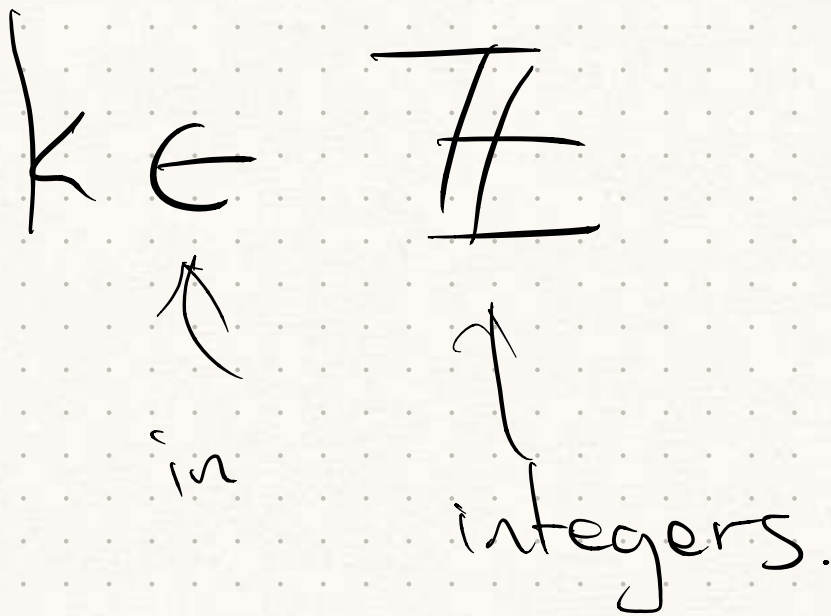 k ∈ ℤ
in
integers.